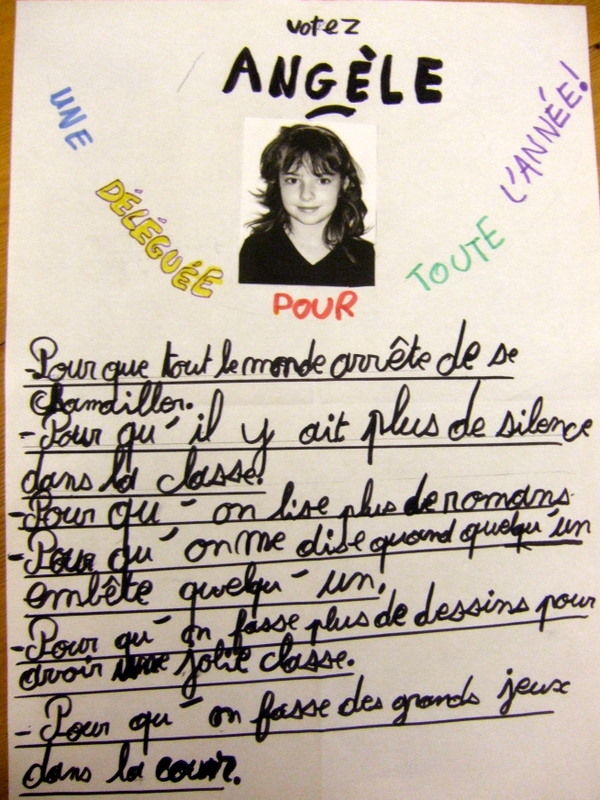 votez
ANGÈLE
UNE
DÉLÉGUÉE
POUR
TOUTE
L'ANNÉE!
-Pour que tout le monde arrête de se
chamailler.
-Pour qu'il y ait plus de silence
dans la classe.
-Pour qu'on lise plus de romans
-Pour qu'on me dise quand quelqu'un
embête quelqu'un.
-Pour qu'on fasse plus de dessins pour
avoir une jolie classe.
-Pour qu'on fasse des grands jeux
dans la cour.